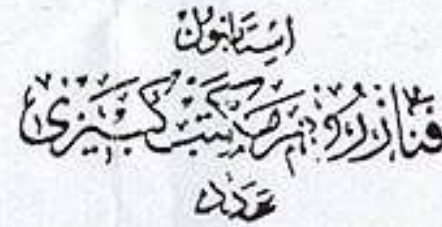 استانبول
فنار روم مكتب كبيرى
عدد